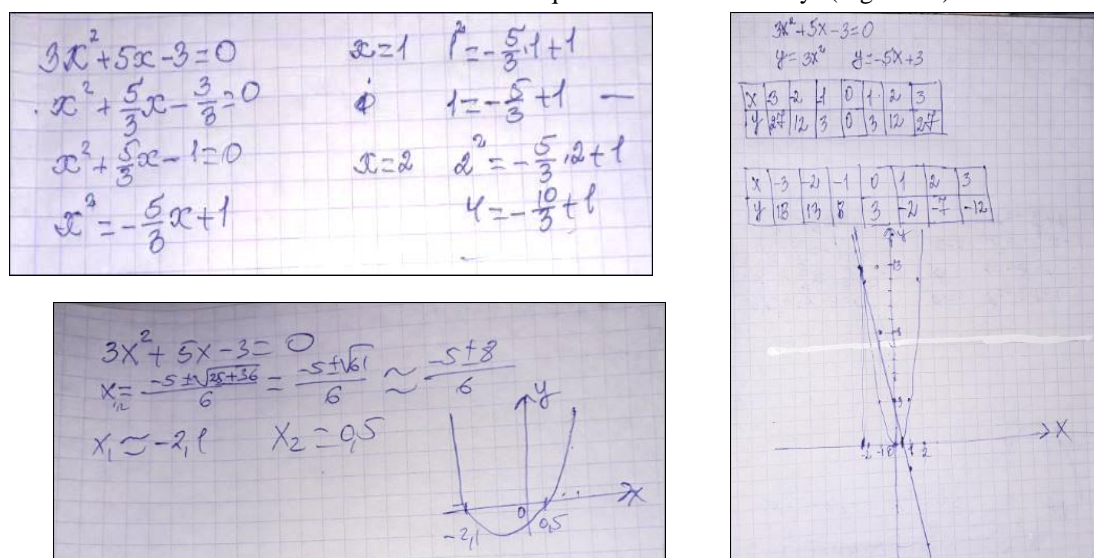 3x² + 5x - 3 = 0
x² + 5/3 x - 3/3 = 0
x² + 5/3 x - 1 = 0
x² = - 5/3 x + 1
x = 1 1² = - 5/3 · 1 + 1
1 = - 5/3 + 1 —
x = 2 2² = - 5/3 · 2 + 1
4 = - 10/3 + 1
3x² + 5x - 3 = 0
x₁,₂ = (-5 ± √25+36)/6 = (-5 ± √61)/6 ≈ (-5 ± 8)/6
x₁ ≈ -2,1 x₂ = 0,5
y
x
-2,1 0 0,5
3x² + 5x - 3 = 0
y = 3x² y = -5x + 3
x -3 -2 -1 0 1 2 3
y 27 12 3 0 3 12 27
x -3 -2 -1 0 1 2 3
y 18 13 8 3 -2 -7 -12
y
13
8
3
x
-2 -1 0 1 2